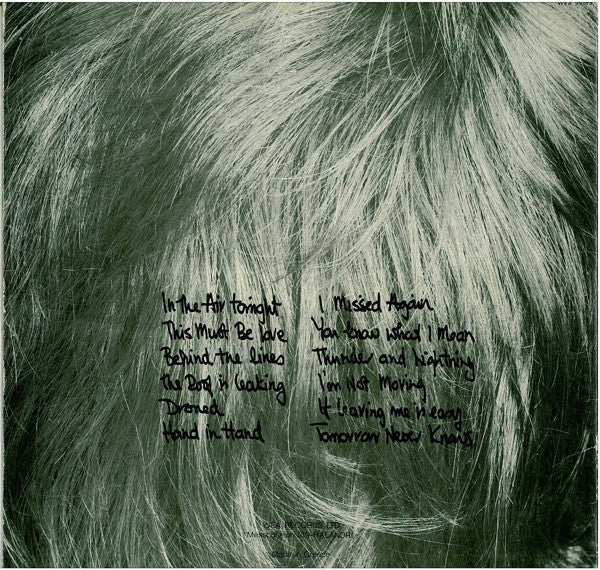 In the Air tonight
This Must Be love
Behind the lines
the Roof is leaking
Droned
Hand in Hand
I Missed Again
You know what I Mean
Thunder and lightning
I'm Not Moving
If leaving me is easy
Tomorrow Never Knows
WEA RECORDS LTD
HALANDRI
Made in Greece